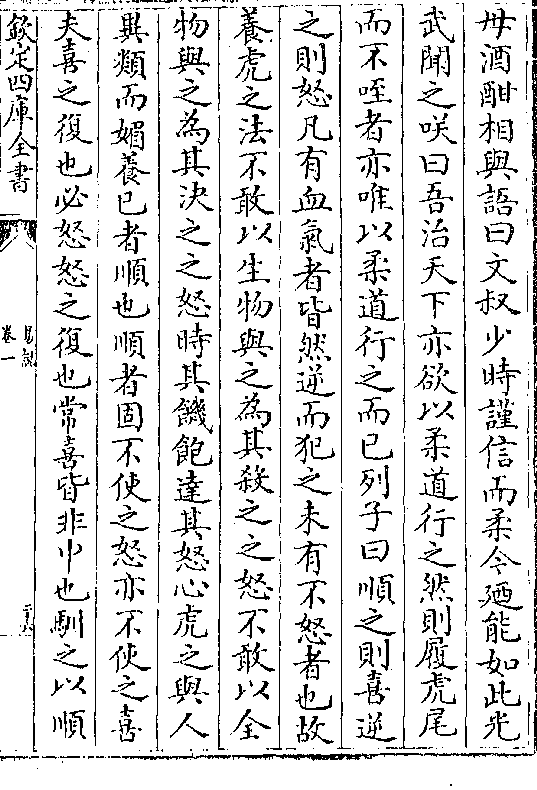 毋酒酣相與語曰文叔少時謹信而柔今廼能如此光
武聞之咲曰吾治天下亦欲以柔道行之然則履虎尾
而不咥者亦唯以柔道行之而已列子曰順之則喜逆
之則怒凡有血氣者皆然逆而犯之未有不怒者也故
養虎之法不敢以生物與之為其殺之之怒不敢以全
物與之為其决之之怒時其饑飽達其怒心虎之與人
異類而媚養已者順也順者固不使之怒亦不使之喜
夫喜之復也必怒怒之復也常喜皆非中也馴之以順
欽定四庫全書
易說
卷一